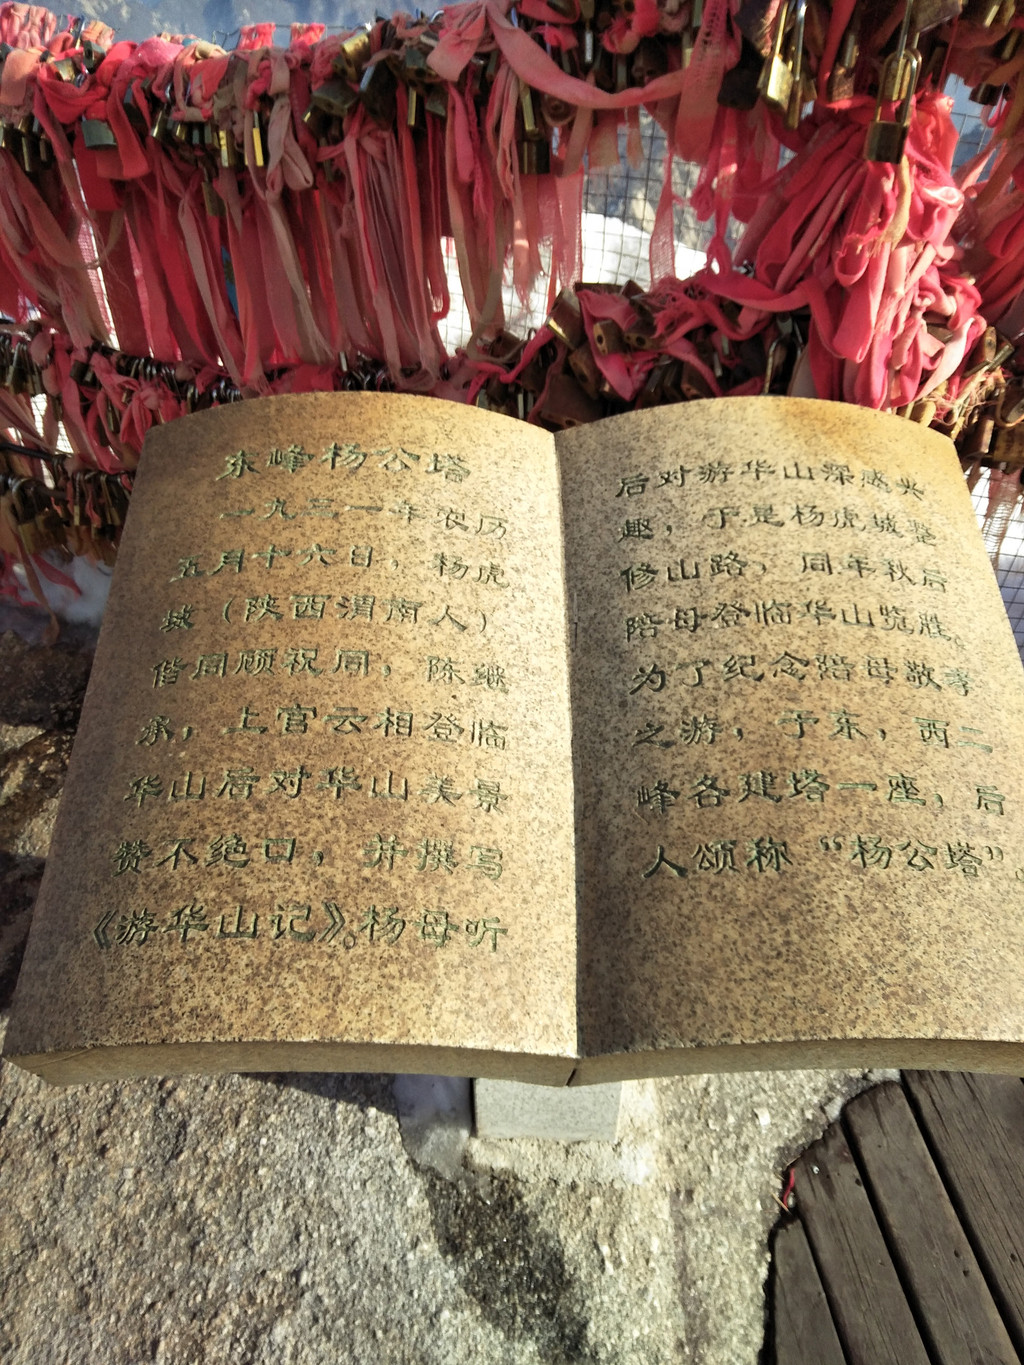 东峰杨公塔
一九三一年农历
五月十六日，杨虎
城（陕西渭南人）
偕同顾祝同，陈继
承，上官云相登临
华山后对华山美景
赞不绝口，并撰写
《游华山记》。杨母听
后对游华山深感兴
趣，于是杨虎城整
修山路，同年秋后
陪母登临华山览胜。
为了纪念陪母敬孝
之游，于东，西二
峰各建塔一座，后
人颂称“杨公塔”。